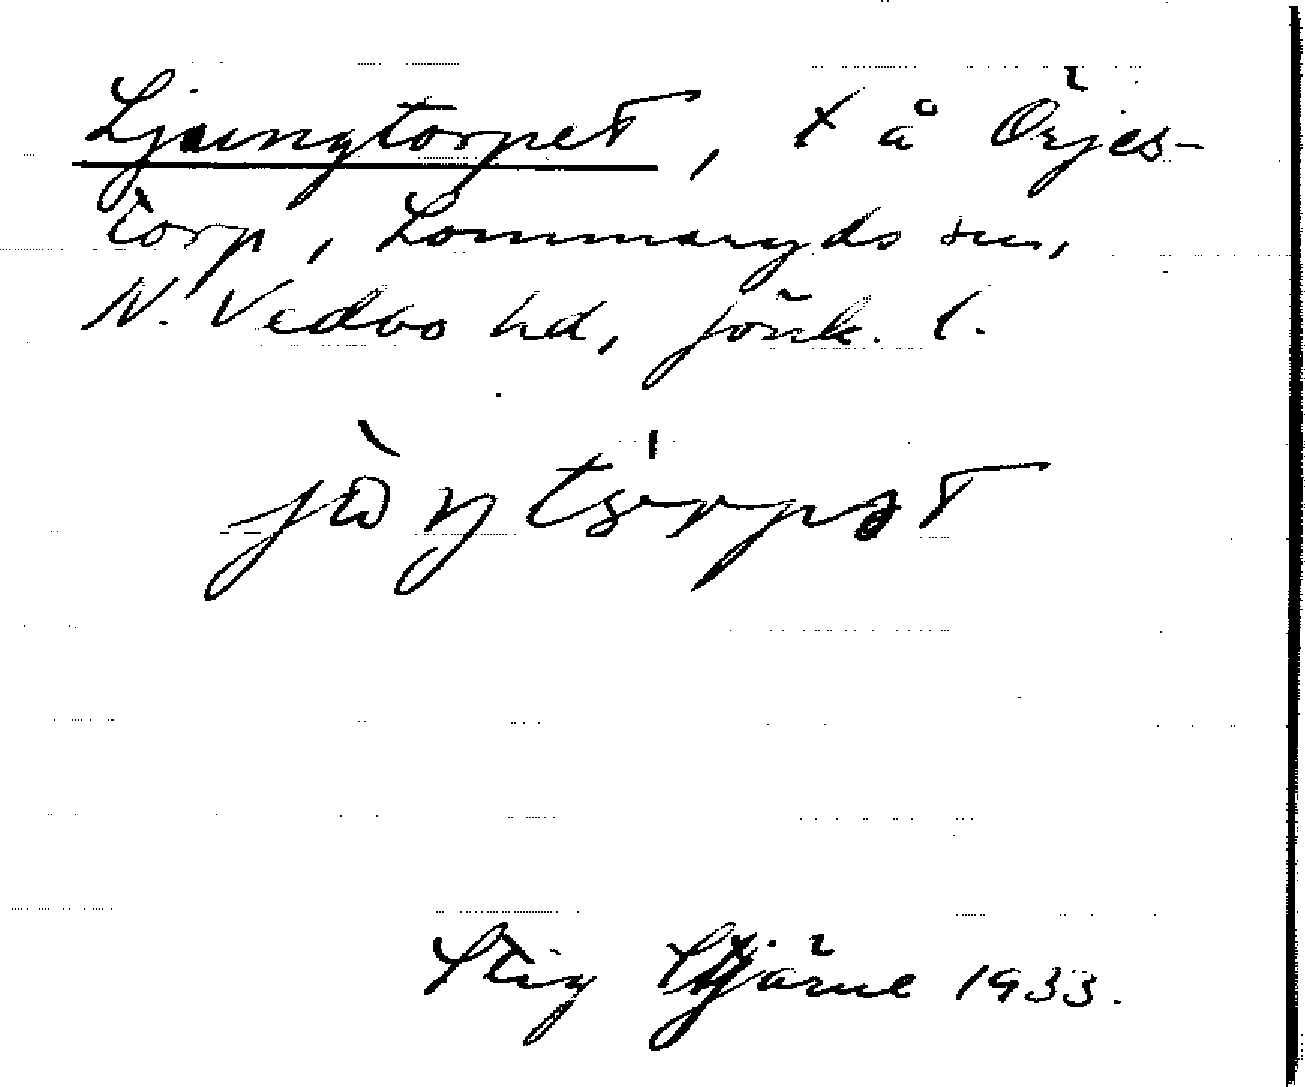 Ljungtorpet, t å Örjes-
torp, Lommaryds sn,
N. Vedbo hd, Jönk. l.
Stig Stjärne 1933.